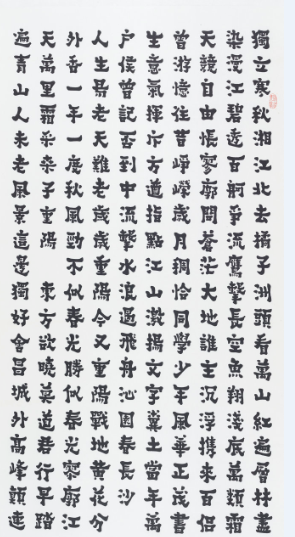 獨立寒秋湘江北去橘子洲頭看萬山紅遍層林盡
染漫江碧透百舸爭流鷹擊長空魚翔淺底萬類霜
天競自由悵寥廓問蒼茫大地誰主沉浮携來百侶
曾游憶往昔崢嶸歲月稠恰同學少年風華正茂書
生意氣揮斥方遒指點江山激揚文字糞土當年萬
户侯曾記否到中流擊水浪遏飛舟 沁園春長沙
人生易老天難老歲歲重陽今又重陽戰地黄花分
外香一年一度秋風勁 不似春光勝似春光寥廓江
天萬里霜 采桑子重陽 東方欲曉莫道君行早踏
遍青山人未老風景這邊獨好會昌城外高峰顛連